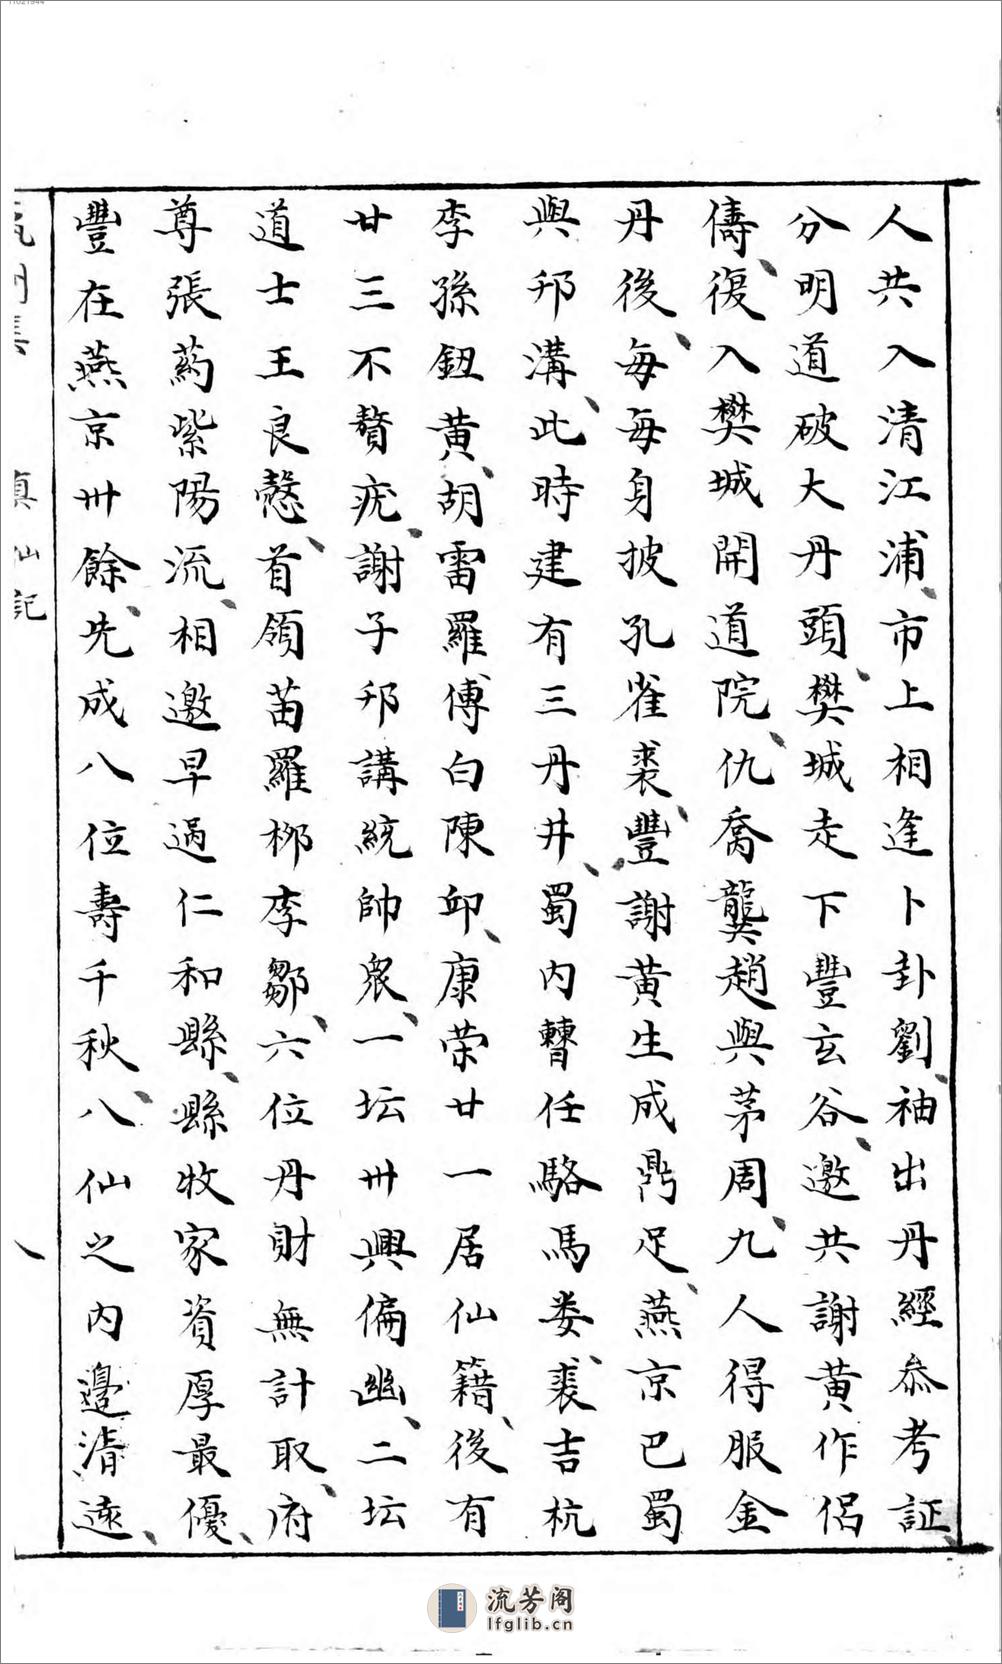 人共入清江浦、市上相逢卜卦劉、袖出丹經叅考証
分明道破大丹頭、樊城走下豐玄谷、邀共謝黄作侣
儔、復入樊城開道院、仇喬龔趙與茅周、九人得服金
丹後、每每身披孔雀裘、豐謝黄生成鼎足、燕京巴蜀
與邗溝、此時建有三丹井、蜀内暜任駱馬娄、裘吉杭
李孫鈕黄、胡雷羅傅白陳邱、康荣廿一居仙籍、後有
廿三不贅疣、謝子邗講統帥衆、一坛卅興偏幽、二坛
道士王良愨、首領苗羅柳李鄒、六位丹財無計取、府
尊張葯紫陽流、相邀早過仁和縣、縣牧家資厚最優、
豐在燕京卅餘、先成八位壽千秋、八仙之内邊清遠、
真仙記
八
11021944
流芳阁
lfglib.cn